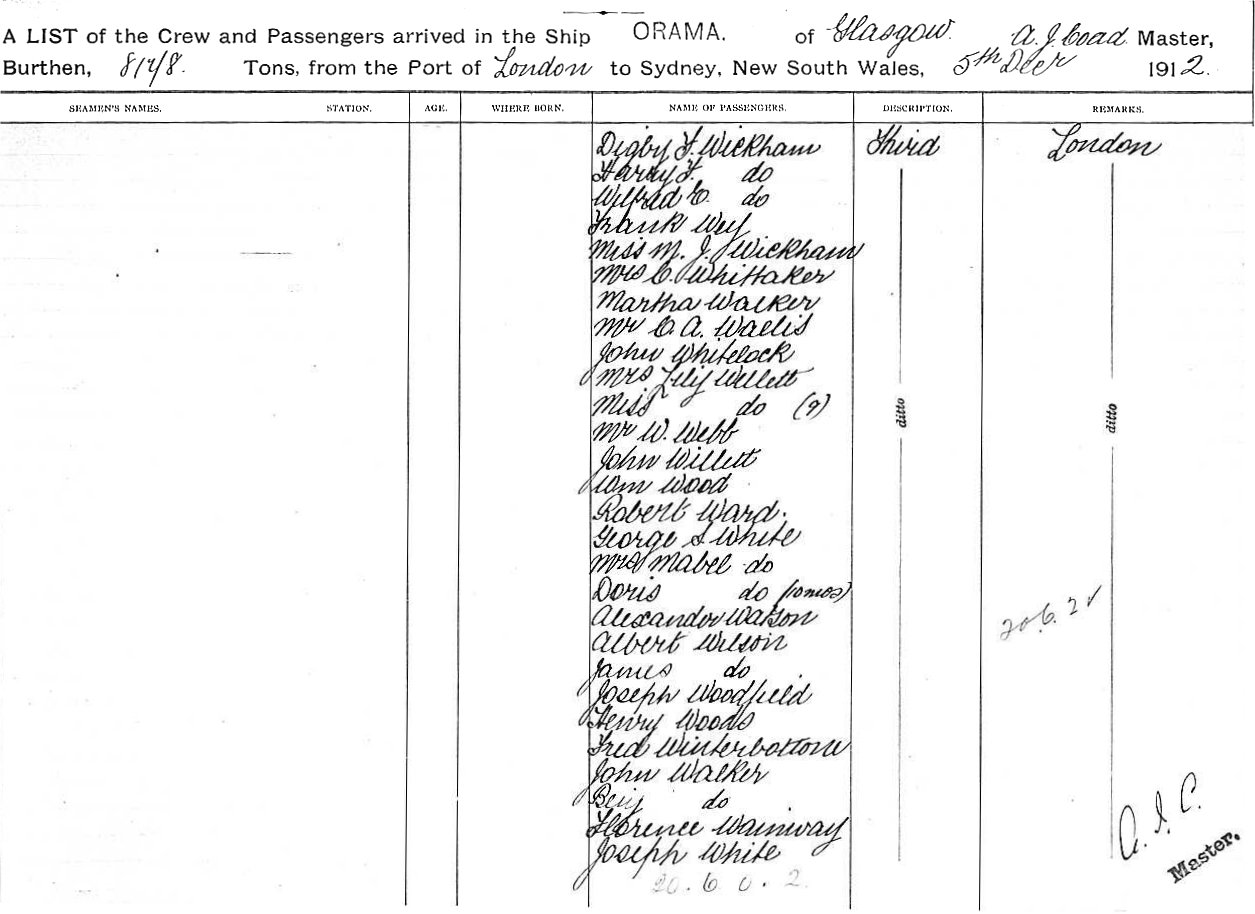 A LIST of the Crew and Passengers arrived in the Ship ORAMA. of Glasgow. A. J. Coad Master,
Burthen, 8178. Tons, from the Port of London to Sydney, New South Wales, 5th Decr 1912.
SEAMEN'S NAMES. STATION. AGE. WHERE BORN. NAME OF PASSENGERS. DESCRIPTION. REMARKS.
Digby F. Wickham Third London
Harry F. do
Wilfred C. do
Frank
Miss M. J. Wickham
Mrs C. Whittaker
Martha Walker
Mr C. A. Wallis
John Whitelock
Mrs Lily Willett
Miss do (9)
Mr W. Webb
ditto ditto
John Willett
Wm Wood
Robert Ward.
George S White
Mrs Mabel do
Doris do (10mos)
Alexander Watson
20.6.2 ✓
Albert Wilson
James do
Joseph Woodfield
Henry Woods
Fred Winterbottom
John Walker
Benj do
Florence Wainway
Joseph White
A. J. C.
Master.
20. 6. 0. 2.